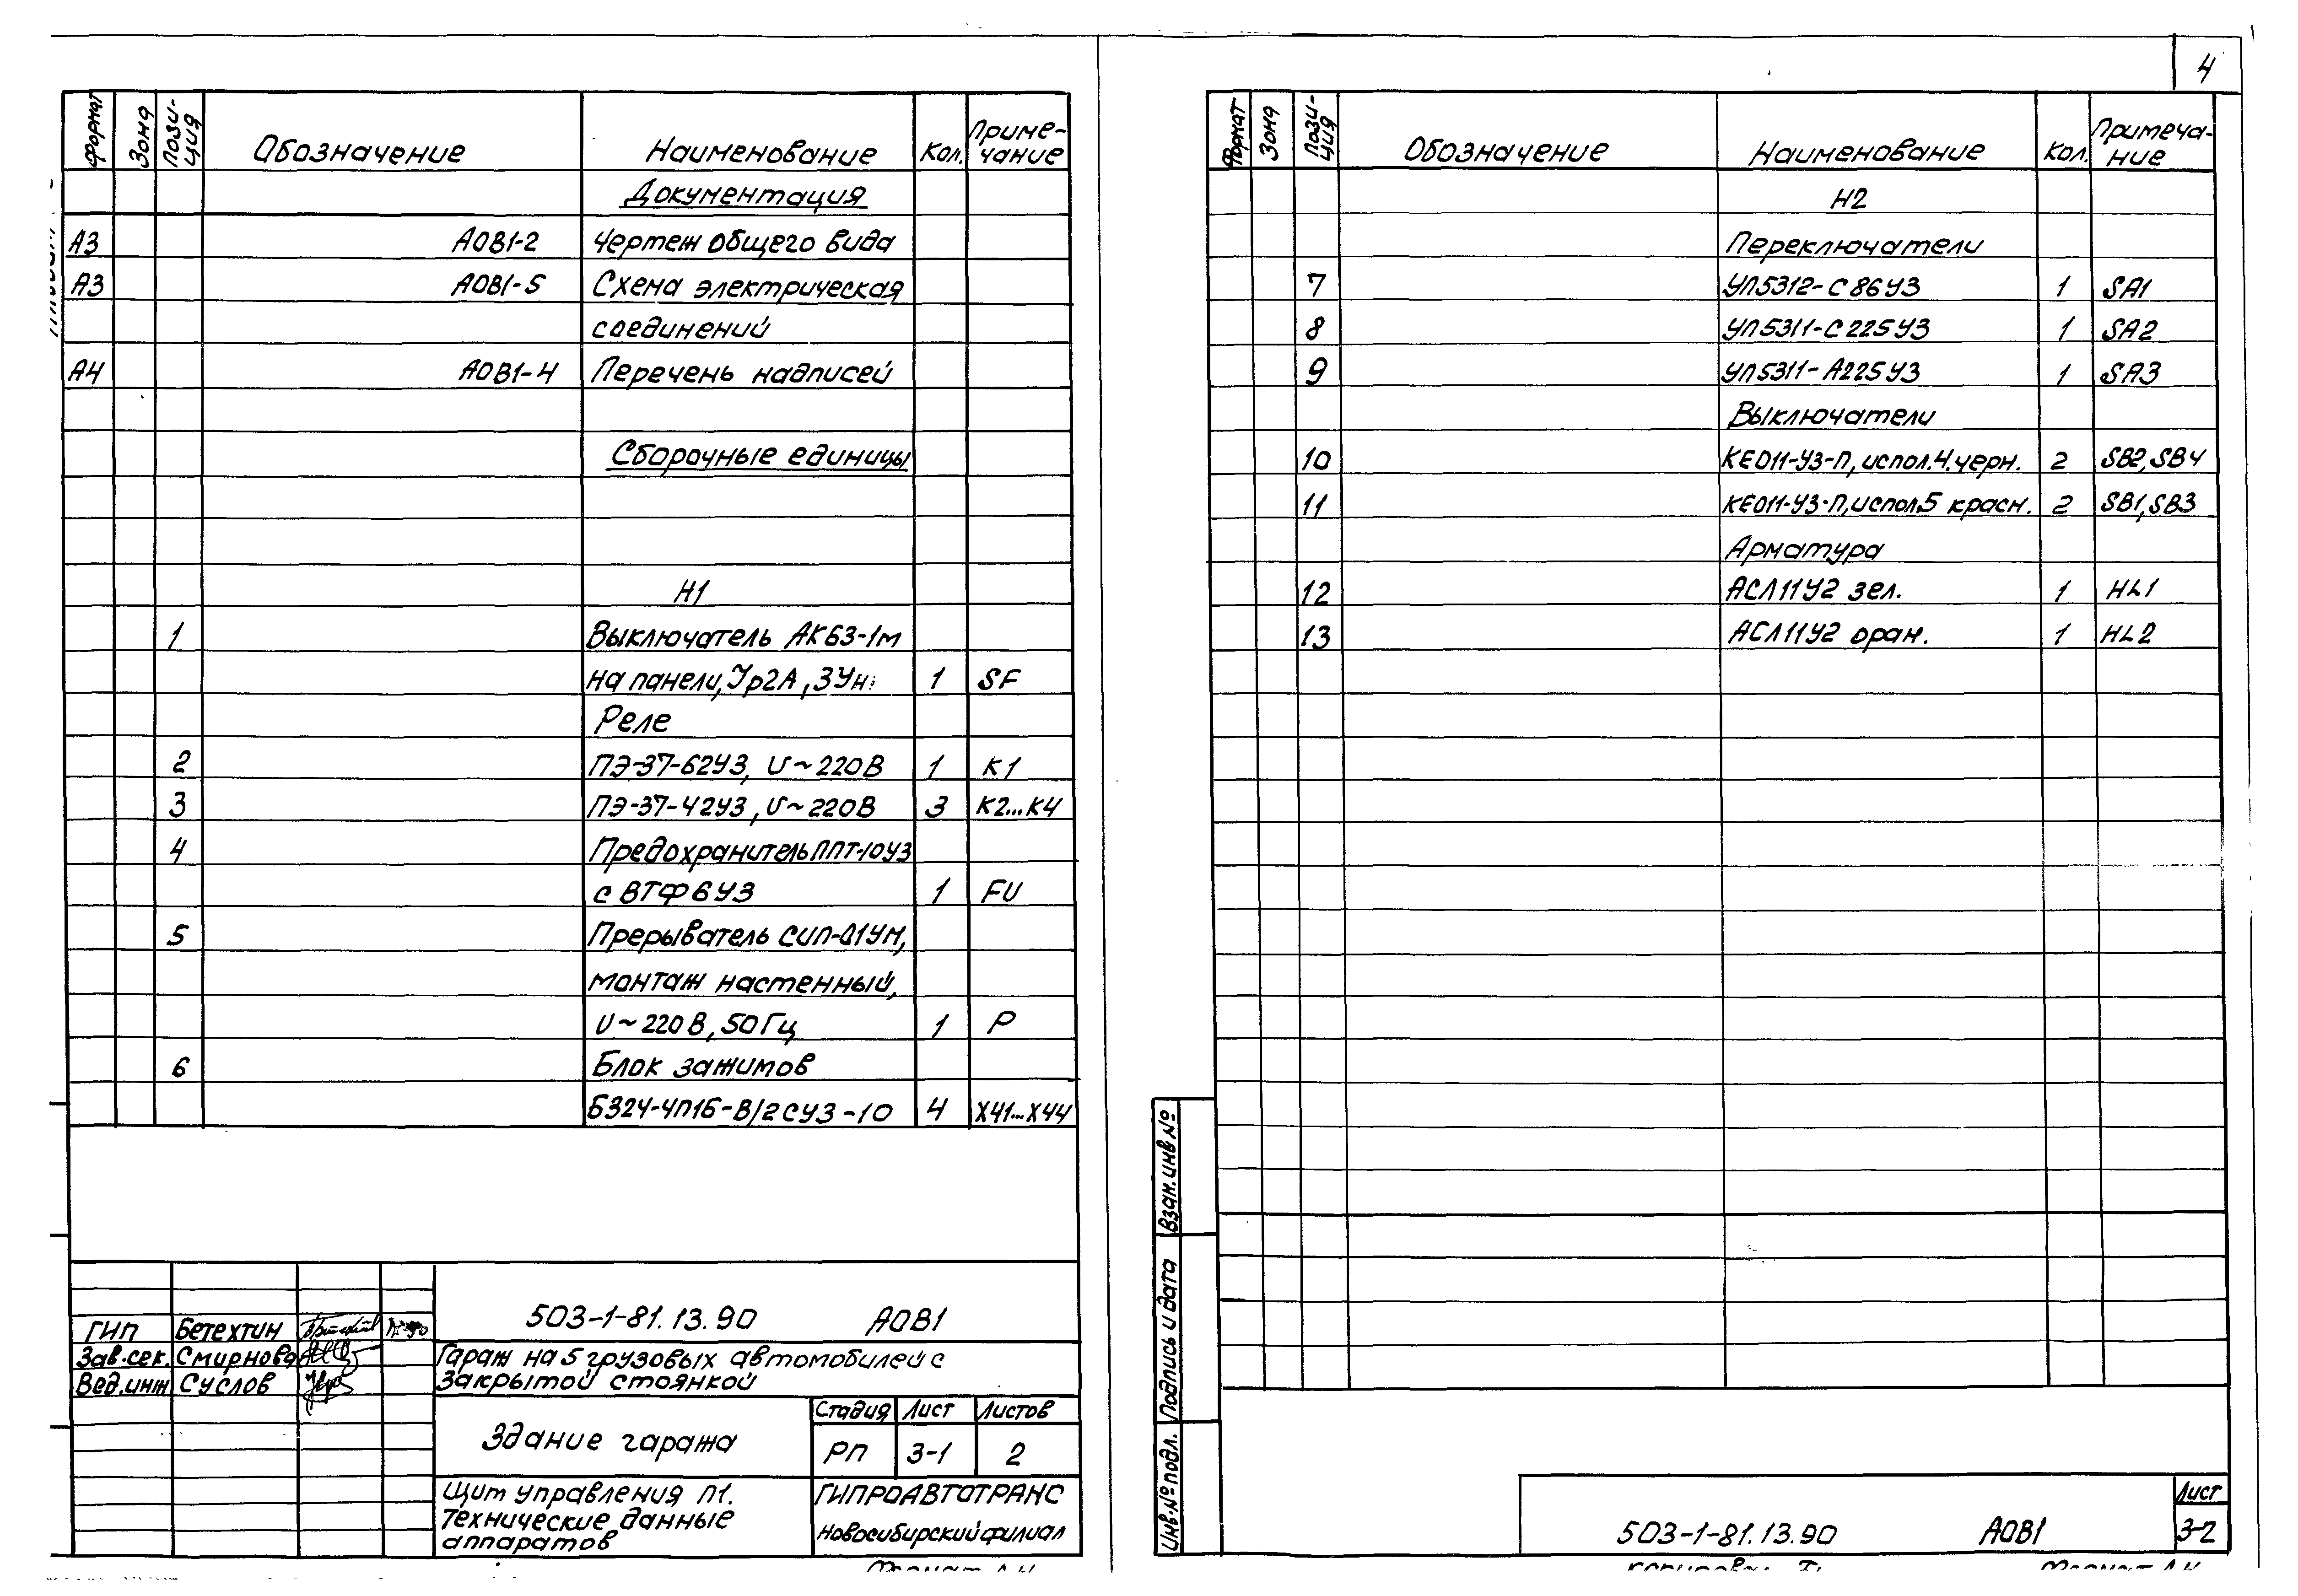 4
Формат Зона Пози-ция Обозначение Наименование Кол. Приме-чание
Документация
А3 АОВ1-2 Чертеж общего вида
А3 АОВ1-5 Схема электрическая
соединений
А4 АОВ1-4 Перечень надписей
Сборочные единицы
Н1
1 Выключатель АК63-1м
на панели, Jр2А, 3Jн 1 SF
Реле
2 ПЭ-37-62У3, U~220В 1 К1
3 ПЭ-37-42У3, U~220В 3 К2...К4
4 Предохранитель ППТ-10У3
с ВТФ6У3 1 FU
5 Прерыватель СИП-01УМ,
монтаж настенный,
U~220В, 50Гц 1 Р
6 Блок зажимов
БЗ24-4П16-В/2СУ3-10 4 Х41...Х44
503-1-81.13.90 АОВ1
ГИП Бетехтин
Зав.сек. Смирнова
Вед.инж Суслов
Гараж на 5 грузовых автомобилей с
закрытой стоянкой
Здание гаража
Стадия Лист Листов
РП 3-1 2
Щит управления П1.
Технические данные
аппаратов
ГИПРОАВТОТРАНС
Новосибирский филиал
Формат Зона Пози-ция Обозначение Наименование Кол. Примеча-ние
Н2
Переключатели
7 УП5312-С86У3 1 SA1
8 УП5311-С225У3 1 SA2
9 УП5311-А225У3 1 SA3
Выключатели
10 КЕ011-У3-П, испол.4, черн. 2 SB2, SB4
11 КЕ011-У3-П, испол.5 красн. 2 SB1, SB3
Арматура
12 АСЛ11У2 зел. 1 HL1
13 АСЛ11У2 оран. 1 HL2
Взам. инв №
Подпись и дата
Инв. № подл.
503-1-81.13.90 АОВ1
Лист
3-2